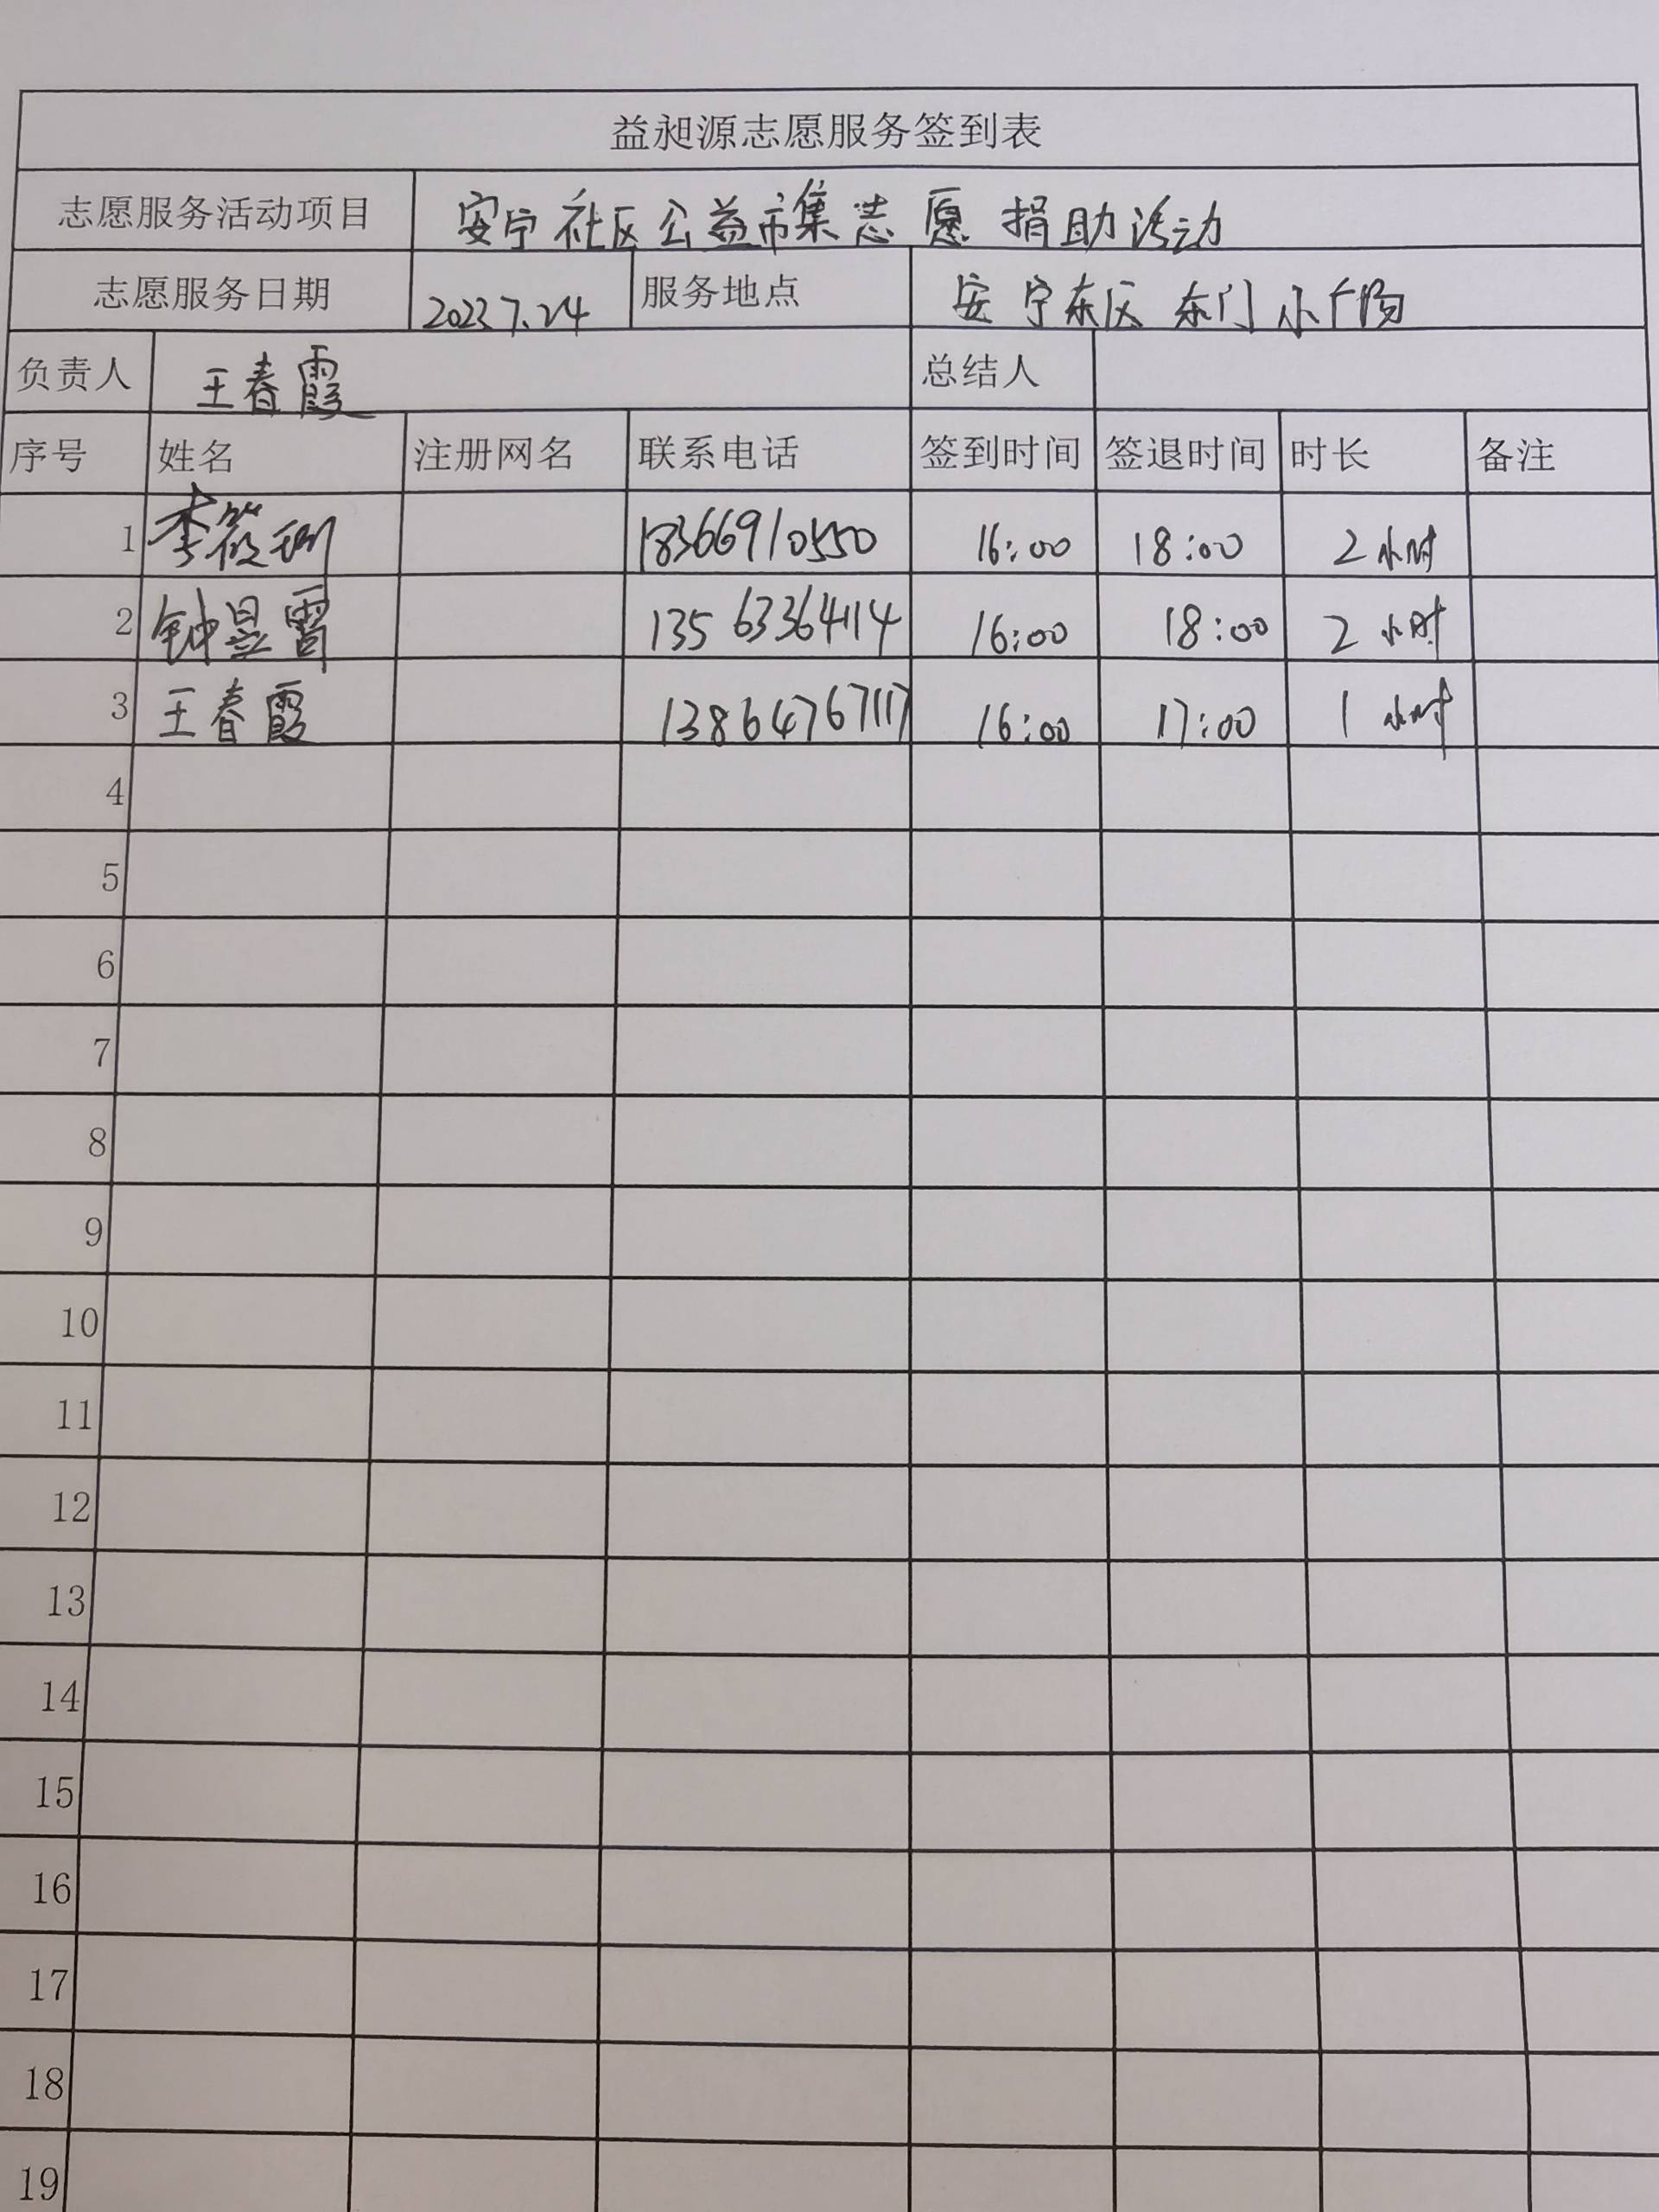 益昶源志愿服务签到表
志愿服务活动项目 安宁社区公益市集志愿捐助活动
志愿服务日期 2023.7.24 服务地点 安宁东区东门小广场
负责人 王春霞 总结人
序号 姓名 注册网名 联系电话 签到时间 签退时间 时长 备注
1 李筱珊 18366910550 16:00 18:00 2小时
2 钟昱霄 13563364114 16:00 18:00 2小时
3 王春霞 13864767117 16:00 17:00 1小时
4
5
6
7
8
9
10
11
12
13
14
15
16
17
18
19